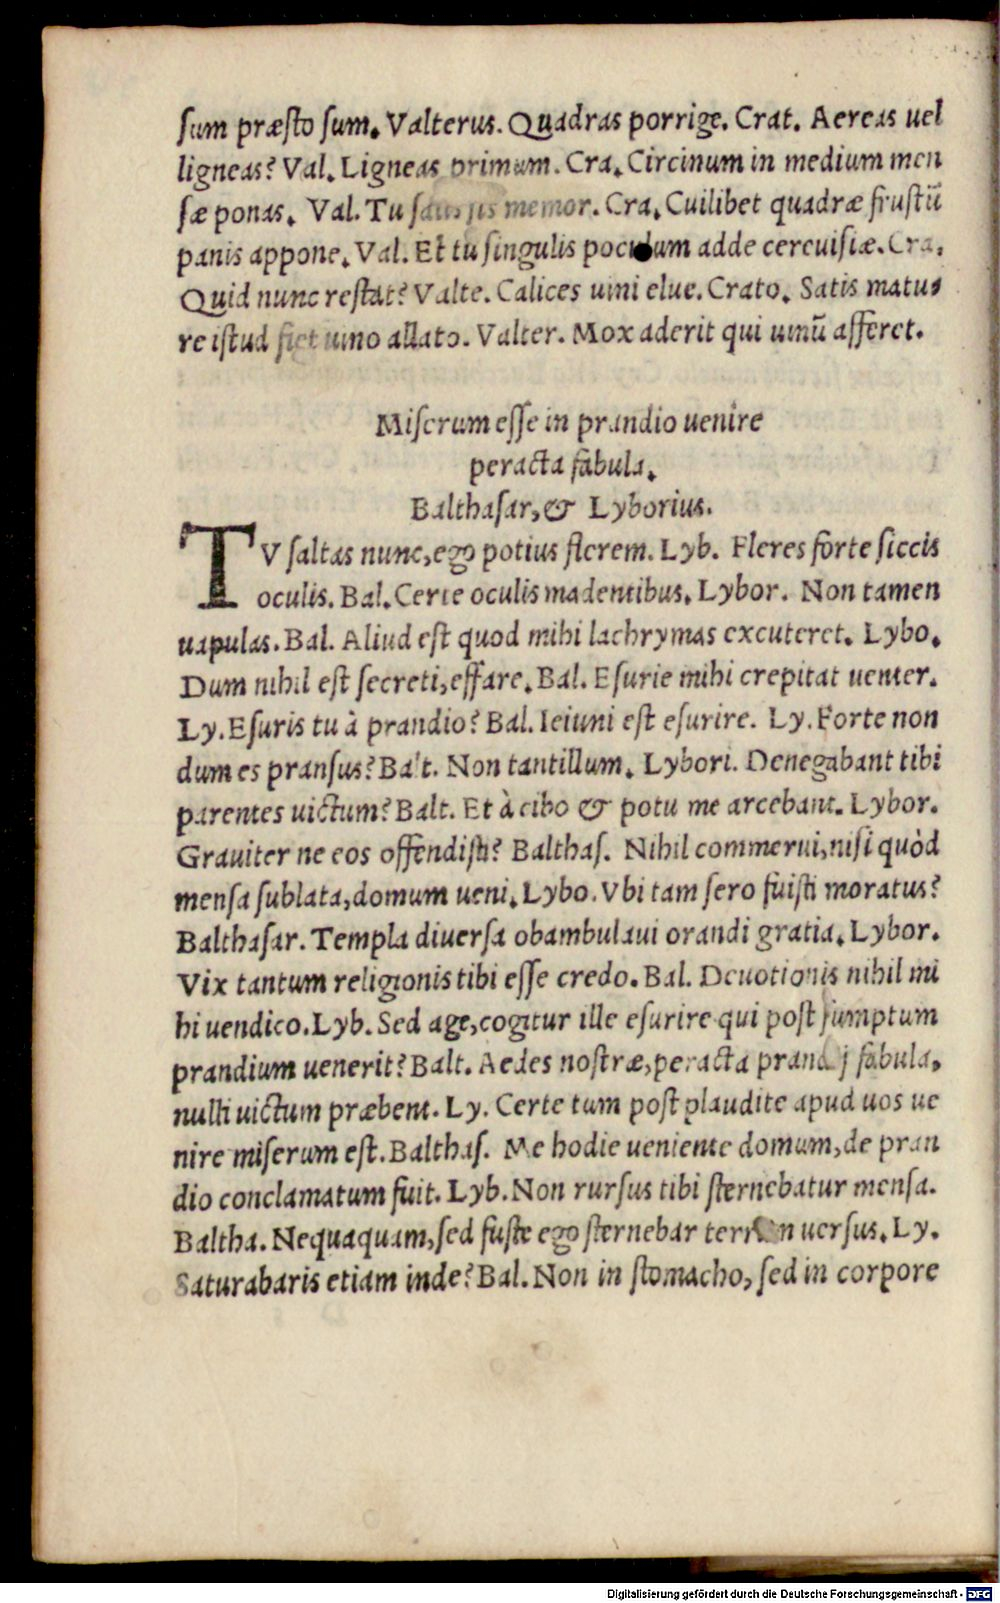 sum præsto sum. Valterus. Quadras porrige. Crat. Aereas uel
ligneas? Val. Ligneas primum. Cra. Circinum in medium men
sæ ponas. Val. Tu saus sis memor. Cra. Cuilibet quadræ frustū
panis appone. Val. Et tu singulis poculum adde cereuisiæ. Cra.
Quid nunc restat? Valte. Calices uini elue. Crato. Satis matu
re istud fiet uino allato. Valter. Mox aderit qui uinū afferet.
Miserum esse in prandio uenire
peracta fabula.
Balthasar, & Lyborius.
TV saltas nunc, ego potius flerem. Lyb. Fleres forte siccis
oculis. Bal. Certe oculis madentibus. Lybor. Non tamen
uapulas. Bal. Aliud est quod mihi lachrymas excuteret. Lybo.
Dum nihil est secreti, effare. Bal. Esurie mihi crepitat uenter.
Ly. Esuris tu à prandio? Bal. Ieiuni est esurire. Ly. Forte non
dum es pransus? Balt. Non tantillum. Lybori. Denegabant tibi
parentes uictum? Balt. Et à cibo & potu me arcebant. Lybor.
Grauiter ne eos offendisti? Balthas. Nihil commerui, nisi quòd
mensa sublata, domum ueni. Lybo. Vbi tam sero fuisti moratus?
Balthasar. Templa diuersa obambulaui orandi gratia. Lybor.
Vix tantum religionis tibi esse credo. Bal. Deuotionis nihil mi
hi uendico. Lyb. Sed age, cogitur ille esurire qui post sumptum
prandium uenerit? Balt. Aedes nostræ, peracta prandij fabula,
nulli uictum præbent. Ly. Certe tum post plaudite apud uos ue
nire miserum est. Balthas. Me hodie ueniente domum, de pran
dio conclamatum fuit. Lyb. Non rursus tibi sternebatur mensa.
Baltha. Nequaquam, sed fuste ego sternebar terram uersus. Ly.
Saturabaris etiam inde? Bal. Non in stomacho, sed in corpore
Digitalisierung gefördert durch die Deutsche Forschungsgemeinschaft - DFG